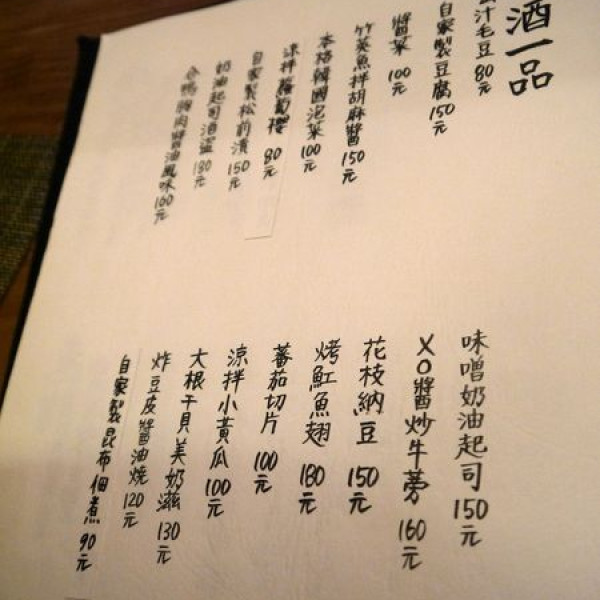 酒一品
汁毛豆 80元
自家製豆腐 150元
醬菜 100元
竹筴魚拌胡麻醬 150元
本格韓國泡菜 100元
涼拌蘿蔔櫻 80元
自家製松前漬 150元
奶油起司酒盜 180元
合鴨胸肉醬油風味 160元
味噌奶油起司 150元
XO醬炒牛蒡 160元
花枝納豆 150元
烤魟魚翅 180元
蕃茄切片 100元
涼拌小黃瓜 100元
大根干貝美奶滋 130元
炸豆皮醬油燒 120元
自家製昆布佃煮 90元